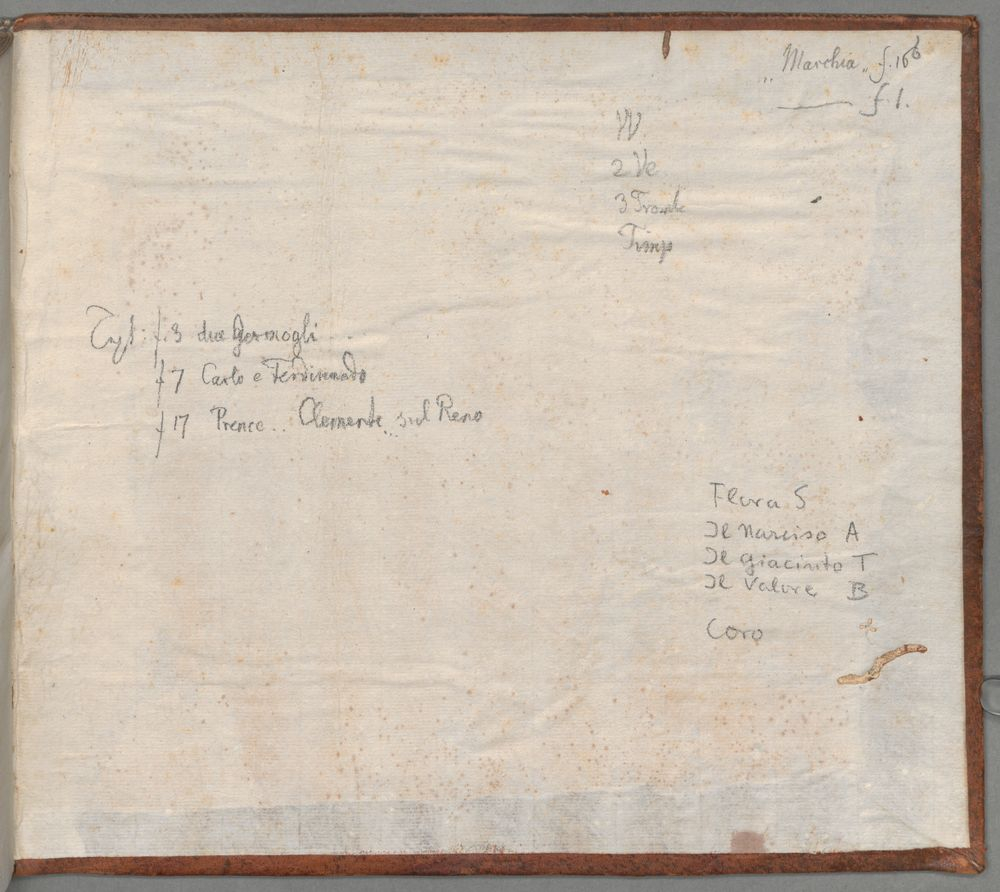 „Marchia„ f. 16b
— f. 1.
VV.
2 Ve
3 Trombe
Timp
f. 3 due Germogli ...
f 7 Carlo e Ferdinando
f 17 Prence .. Clemente .. sul Reno
Flora S
Il Narciso A
Il Giacinto T
Il Valore B
Coro